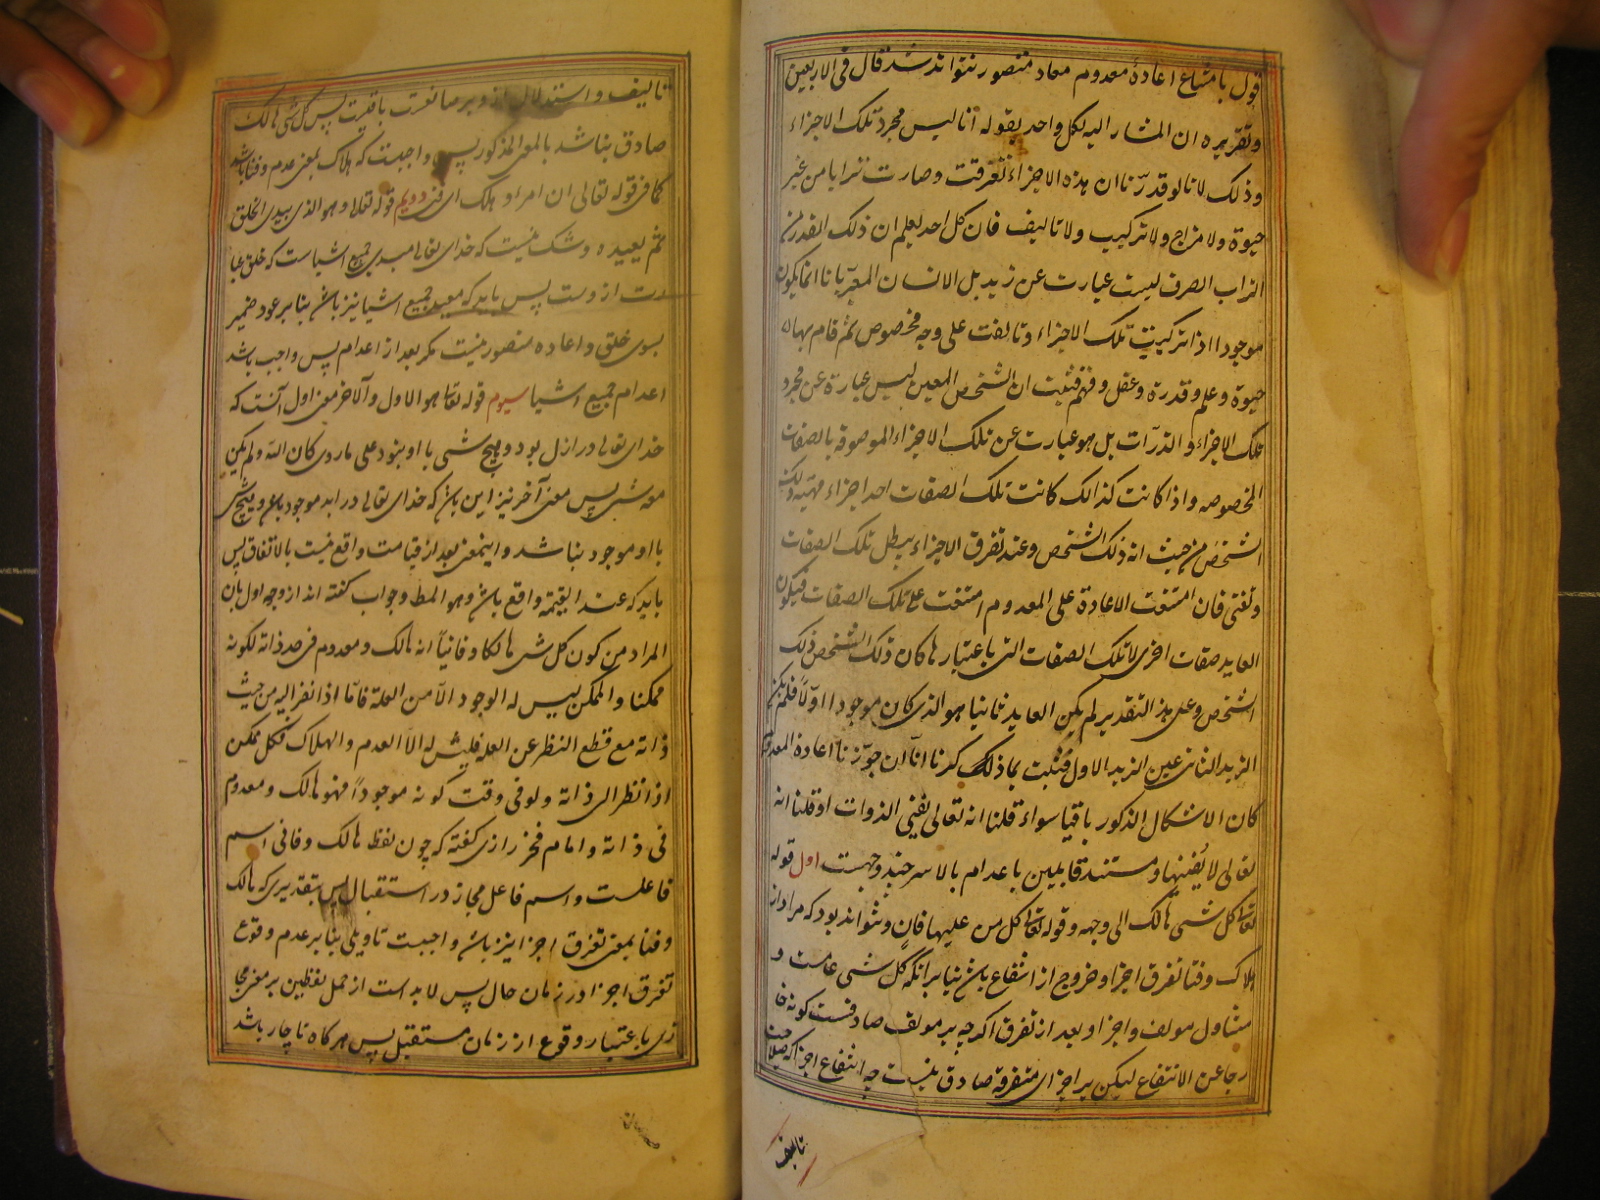 قول بامتناع اعادهٔ معدوم معاد متصور نتواند شد قال فی الاربعین
و تقریره ان المشار الیه لکل واحد بقوله انا لیس مجرد تلک الاجزاء
و ذلک لانا لو قدرنا ان هذه الاجزاء تفرقت و صارت ترابا من غیر
حیوة و لا مزاج و لا ترکیب و لا تالیف فان کل احد یعلم ان ذلک القدر من
التراب الصرف لیست عبارت عن زید بل الانسان المعیّر بانا انما یکون
موجودا اذا ترکبت تلک الاجزاء و تالفت علی وجه مخصوص ثم قام بهاله
حیوة و علم و قدرة و عقل و فهم فثبت ان الشخص المعین لیس عبارة عن مجرد
تلک الاجزاء و الذرّات بل هو عبارت عن تلک الاجزاء الموصوفة بالصفات
المخصوصه و اذا کانت کذالک کانت تلک الصفات احد اجزاء مهیّه ذلک
الشخص من حیث انه ذلک الشخص و عند تفرق الاجزاء یبطل تلک الصفات
و تفنی فان امتنعت الاعادة علی المعدوم امتنعت علی تلک الصفات فیکون
العاید صفات اخری لا تلک الصفات التی باعتبارها کان ذلک الشخص ذلک
الشخص و علی هذا التقدیر لم یکن العاید ثانیا هو الذی کان موجودا اولاً فلم یکن
الزید الثانی عین الزید الاول فثبت بما ذکرنا انّا ان جوّزنا اعادة المعدوم
کان الاشکال المذکور باقیا سواء قلنا انه تعالی یفنی الذوات او قلنا انه
تعالی لا یُفنیها و مستند قایلین باعدام بالاسر چند وجهست اول قوله
تعالی کل شئی هالک الی وجهه و قوله تعالی کل من علیها فان و نتواند بود که مراد از
هلاک و فنا تفرق اجزا و خروج از انتفاع باشد بنا بر آنکه کل شئی عامست و
متناول مولف و اجزا و بعد از تفرق اگرچه بر مولف صادقست کونه خا
رجا عن الانتفاع لیکن بر اجزای متفرقه صادق نیست چه انتفاع اجزا که صلاحیت
تالیف
تالیف و استدلال از و بر صانعت باقیست پس کل شئی هالک
صادق نباشد بالمعنی المذکور پس واجبست که هلاک بمعنی عدم و فنا باشد
کما فی قوله تعالی ان امرأو هلک ای فنی دویم قوله تعالی و هو الذی یبدی الخلق
ثم یعیده و شک نیست که خدای تعالی مبدی جمیع اشیاست که خلق بمعا
ست ازوست پس باید که معید جمیع اشیا نیز باشد بنا بر عود ضمیر
بسوی خلق و اعاده متصور نیست مگر بعد از اعدام پس واجب باشد
اعدام جمیع اشیا سیوم قوله تعالی هو الاول و الآخر معنی اول آنست که
خدای تعالی در ازل بود و هیچ شئی با او نبود علی ماروی کان الله و لم یکن
معه شئی پس معنی آخر نیز این باشد که خدای تعالی در ابد موجود باشد و هیچ شئی
با او موجود نباشد و اینمعنی بعد از قیامت واقع نیست بالاتفاق پس
باید که عند القیمة واقع باشد و هو المط و جواب گفته اند از وجه اول بان
المراد من کون کل شئی هالکا و فانیاً انه هالک و معدوم فی حد ذاته لکونه
ممکنا و الممکن لیس له الوجود الا من العلة فامّا اذا نظر الیه من حیث
ذاته مع قطع النظر عن العله فلیس له الا العدم و الهلاک فکل ممکن
اذا نظر الی ذاته و لو فی وقت کونه موجوداً فهو هالک و معدوم
فی ذاته و امام فخر رازی گفته که چون لفظ هالک و فانی اسم
فاعلست و اسم فاعل مجاز در استقبال پس بتقدیری که هالک
و فنا بمعنی تفرق اجزا نیز باشد واجبست تاویلی بنا بر عدم وقوع
تفرق اجزا در زمان حال پس لابد است از حمل لفظین بر معنی مجا
زی باعتبار وقوع از زمان مستقبل پس هرگاه ناچار باشد